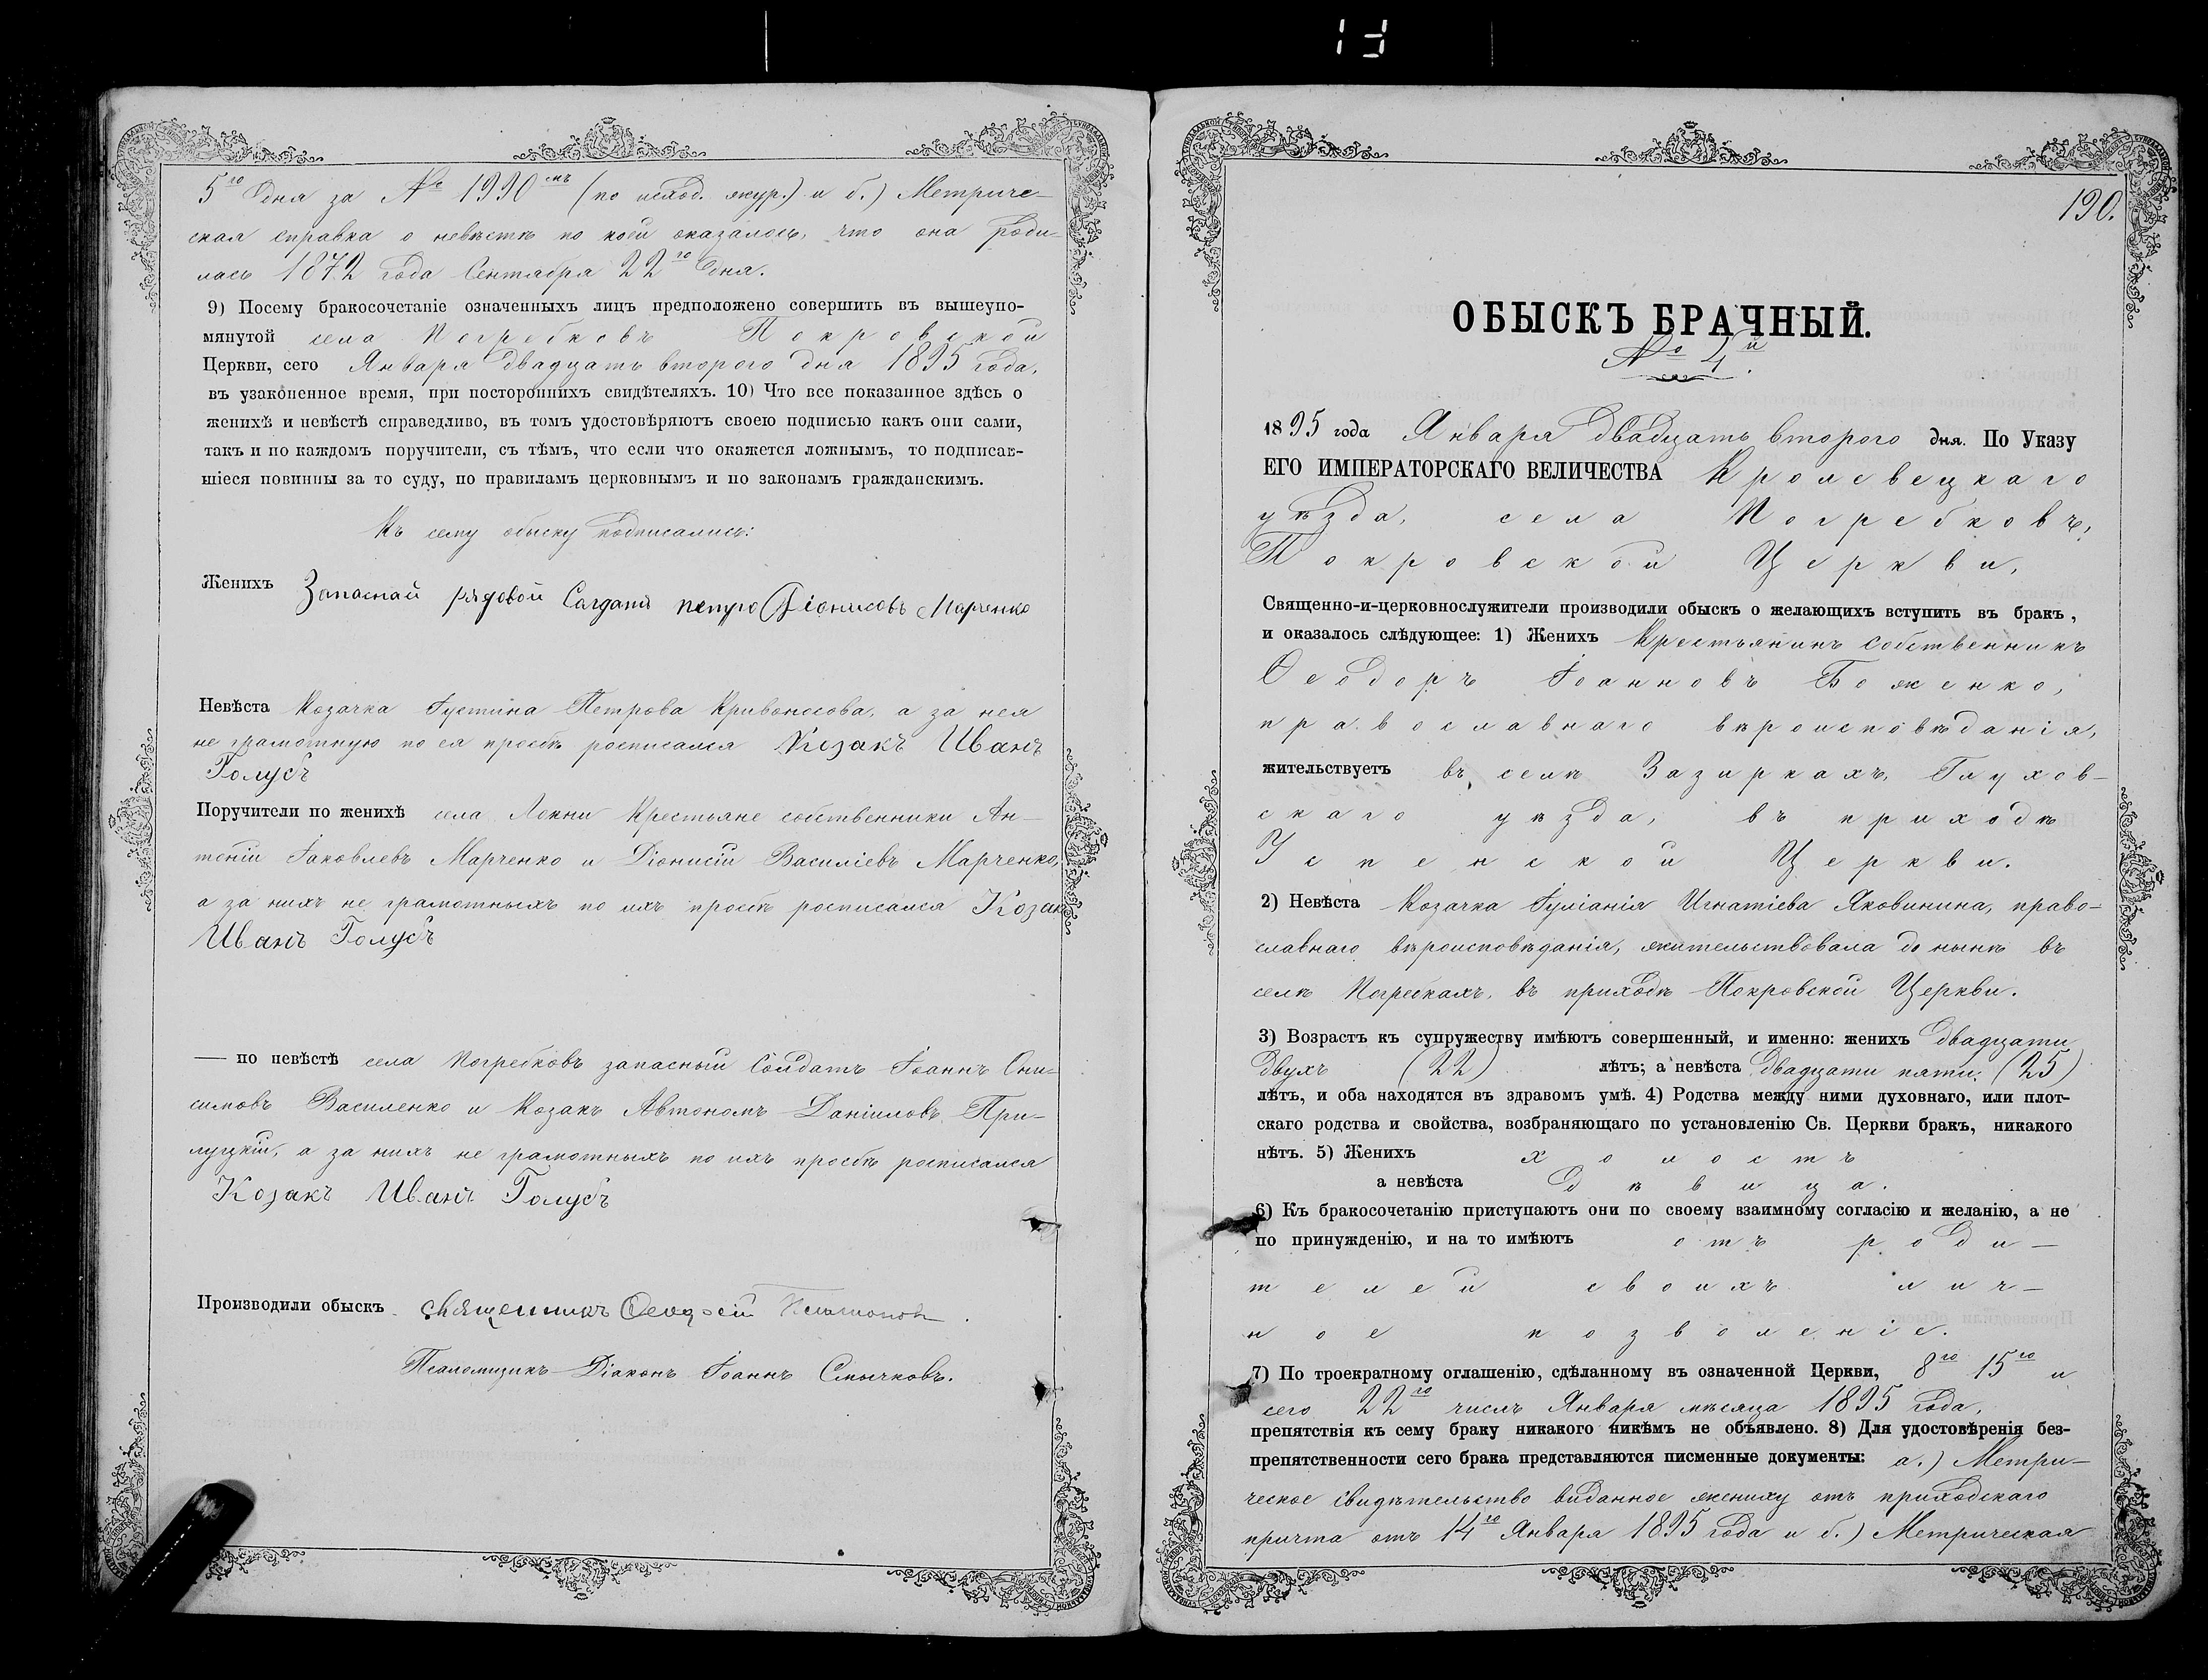 5го дня за № 1990емъ (по исход. жур.) и б.) Метриче-
ская справка о невѣстѣ по коей оказалось, что она роди-
лась 1872 года Сентября 22го дня.
9) Посему бракосочетаніе означенныхъ лицъ предположено совершить въ вышеупо-
мянутой села Погребковъ Покровской
Церкви, сего Января двадцать второго дня 1895 года,
въ узаконенное время, при постороннихъ свидѣтеляхъ. 10) Что все показанное здѣсь о
женихѣ и невѣстѣ справедливо, въ томъ удостовѣряютъ своею подписью какъ они сами,
такъ и по каждомъ поручители, съ тѣмъ, что если что окажется ложнымъ, то подписав-
шіеся повинны за то суду, по правиламъ церковнымъ и по законамъ гражданскимъ.
Къ сему обыску подписались:
Женихъ Запаснай рядовой Салдатъ петро Діонисовъ Марченко
Невѣста Козачка Іустина Петрова Кривоносова, а за нея
не грамотную по ея просьбѣ росписался Козакъ Иванъ
Голубъ
Поручители по женихѣ села Локни Крестьяне собственники Ан-
тоній Іаковлевъ Марченко и Діонисій Василіевъ Марченко,
а за нихъ не грамотныхъ по ихъ просьбѣ росписался Козак
Иванъ Голубъ
— по невѣстѣ села Погребковъ запасный Солдатъ Іоаннъ Они-
симовъ Василенко и Козакъ Автономъ Даніиловъ При-
луцкій, а за нихъ не грамотныхъ по ихъ просьбѣ росписался
Козакъ Иванъ Голубъ
Производили обыскъ священникъ Ѳеодосій
Псаломщикъ-Діаконъ Іоаннъ Смычковъ.
190.
ОБЫСКЪ БРАЧНЫЙ.
№ 4й.
1895 года Января двадцать второго дня. По Указу
ЕГО ИМПЕРАТОРСКАГО ВЕЛИЧЕСТВА Кролевецкаго
уѣзда, села Погребковъ,
Покровской Церкви,
Священно-и-церковнослужители производили обыскъ о желающихъ вступить въ бракъ,
и оказалось слѣдующее: 1) Женихъ Крестьянинъ собственникъ
Ѳеодоръ Іоанновъ Боженко,
православнаго вѣроисповѣданія,
жительствуетъ въ селѣ Зазиркахъ, Глухов-
скаго уѣзда, въ приходѣ
Успенской Церкви.
2) Невѣста Козачка Іуліанія Игнатіева Яковинина, право-
славнаго вѣроисповѣданія, жительствовала до нынѣ въ
селѣ Погребкахъ, въ приходѣ Покровской Церкви.
3) Возрастъ къ супружеству имѣютъ совершенный, и именно: женихъ двадцати
двухъ (22) лѣтъ; а невѣста двадцати пяти. (25)
лѣтъ, и оба находятся въ здравомъ умѣ. 4) Родства между ними духовнаго, или плот-
скаго родства и свойства, возбраняющаго по установленію Св. Церкви бракъ, никакого
нѣтъ. 5) Женихъ холостъ
а невѣста дѣвица.
6) Къ бракосочетанію приступаютъ они по своему взаимному согласію и желанію, а не
по принужденію, и на то имѣютъ отъ роди-
телей своихъ лич-
ное позволеніе.
7) По троекратному оглашенію, сдѣланному въ означенной Церкви, 8го 15го и
сего 22го числъ Января мѣсяца 1895 года,
препятствія къ сему браку никакого никѣмъ не объявлено. 8) Для удостовѣренія без-
препятственности сего брака представляются писменные документы: а.) Метри-
ческое свидѣтельство виданное жениху отъ приходскаго
причта отъ 14го Января 1895 года и б.) Метрическая